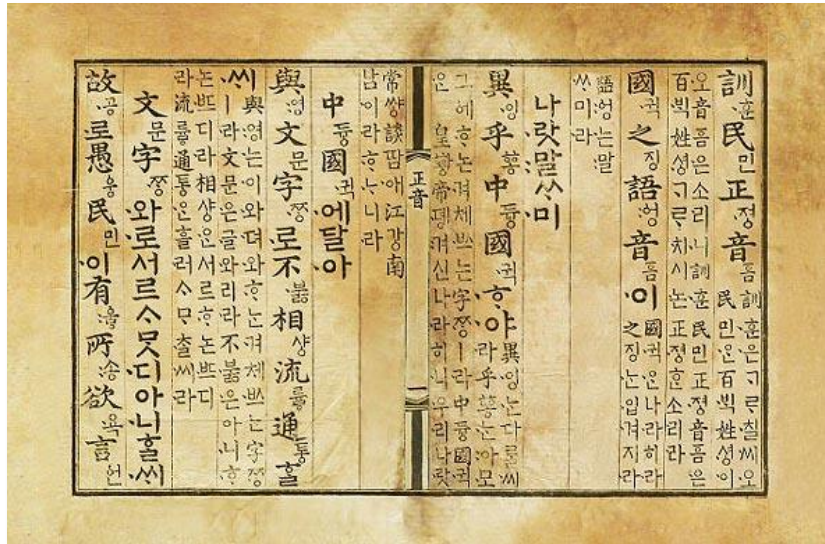 訓훈民민正졍音흠
訓훈은ᄀᆞᄅᆞ칠씨오
民민ᄋᆞᆫ百ᄇᆡᆨ姓셩이
오音흠은소리니訓훈民민正졍音흠은
百ᄇᆡᆨ姓셩ᄀᆞᄅᆞ치시논正졍ᄒᆞᆫ소리라
國귁之징語ᅌᅥᆼ音흠이
國귁ᄋᆞᆫ나라히라
之징ᄂᆞᆫ입겨지라
語ᅌᅥᆼ는말
ᄊᆞ미라
나랏말ᄊᆞ미
異잉乎ᅘᅩᆼ中듀ᇰ國귁ᄒᆞ야
異잉ᄂᆞᆫ다ᄅᆞᆯ씨
라乎ᅘᅩᆼᄂᆞᆫ아모
그ᅌᅦᄒᆞ논겨체ᄡᅳ는字ᄍᆞᆼㅣ라中듀ᇰ國귁
ᄋᆞᆫ皇ᅘᅪᇰ帝뎽겨신나라히니우리나랏
正音
常썅談땀애江강南
남이라ᄒᆞᄂᆞ니라
中듀ᇰ國귁에달아
與영文문字ᄍᆞᆼ로不부ᇙ相샤ᇰ流류ᇢ通토ᇰᄒᆞᆯ
씨
與영는이와뎌와ᄒᆞ는겨체ᄡᅳ는字ᄍᆞᆼ
ㅣ라文문은글와리라不부ᇙ은아니ᄒᆞ
논ᄠᅳ디라相샤ᇰᄋᆞᆫ서르ᄒᆞ논ᄠᅳ디
라流류ᇢ通토ᇰᄋᆞᆫ흘러ᄉᆞᄆᆞᄎᆞᆯ씨라
文문字ᄍᆞᆼ와로서르ᄉᆞᄆᆞᆺ디아니ᄒᆞᆯᄊᆡ
故공로愚ᅌᅮᆼ民민이有ᅌᅮᇢ所송欲욕言언